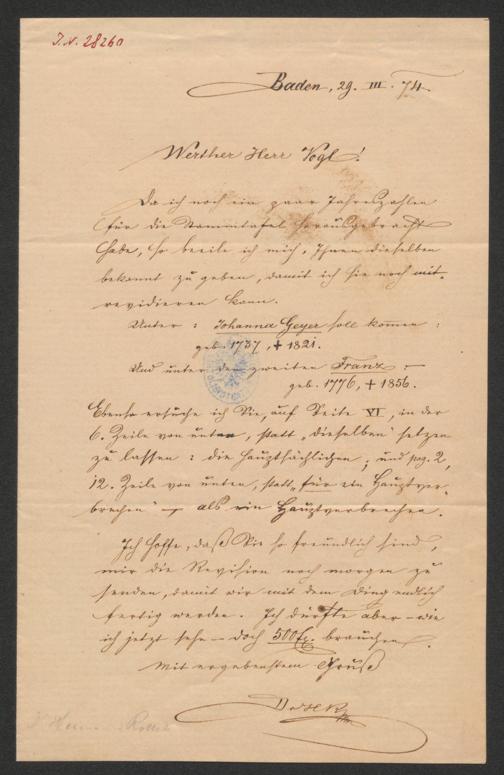 I.N. 28260
Baden, 29. III. 74.
Werther Herr Vogl!
Da ich noch ein paar Jahreszahlen
für die Stammtafel herausgebracht
habe, so beeile ich mich, Ihnen dieselben
bekannt zu geben, damit ich sie noch mit-
revidieren kann.
Unter: Johanna Geyer soll komen:
geb. 1737, + 1821.
Und unter den zweiten Franz:
geb. 1776, + 1856.
Ebenso ersuche ich Sie, auf Seite VI, in der
6. Zeile von unten, statt „dieselben" setzen
zu lassen: die hauptsächlichen; und pag. 2,
12. Zeile von unten, statt „für ein Hauptver-
brechen" – als ein Hauptverbrechen.
Ich hoffe, daß Sie so freundlich sind,
mir die Revision noch morgen zu
senden, damit wir mit dem Ding endlich
fertig werden. Ich dürfte aber – wie
ich jetzt sehe – doch 500 Ex. brauchen.
Mit ergebenstem Gruß